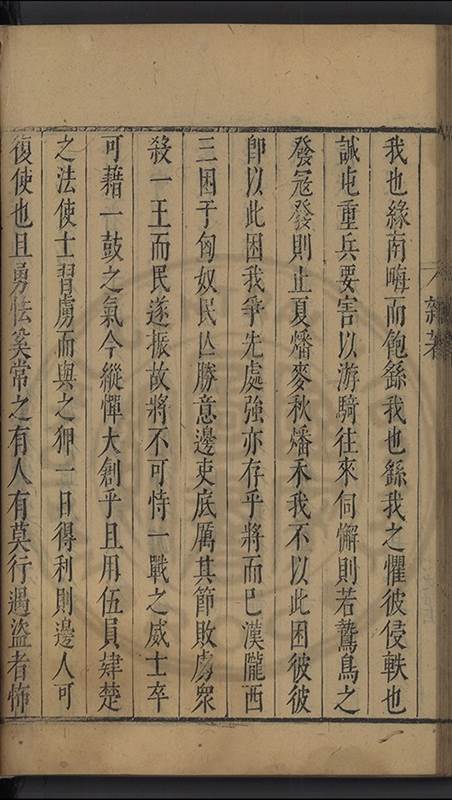 我也緣南畮而飽繇我也繇我之懼彼侵軼也
誠屯重兵要害以游騎往來伺懈則若鷙鳥之
發冦發則止夏燔麥秋燔禾我不以此困彼彼
即以此困我爭先處強亦存乎將而巳漢隴西
三困于匈奴民亾勝意邊吏底厲其節敗虜衆
殺一王而民遂振故將不可恃一戰之威士卒
可藉一鼓之氣今縱憚大創乎且用伍員肄楚
之法使士習虜而與之狎一日得利則邊人可
復使也且勇怯奚常之有人有莫行遇盜者怖
雜著